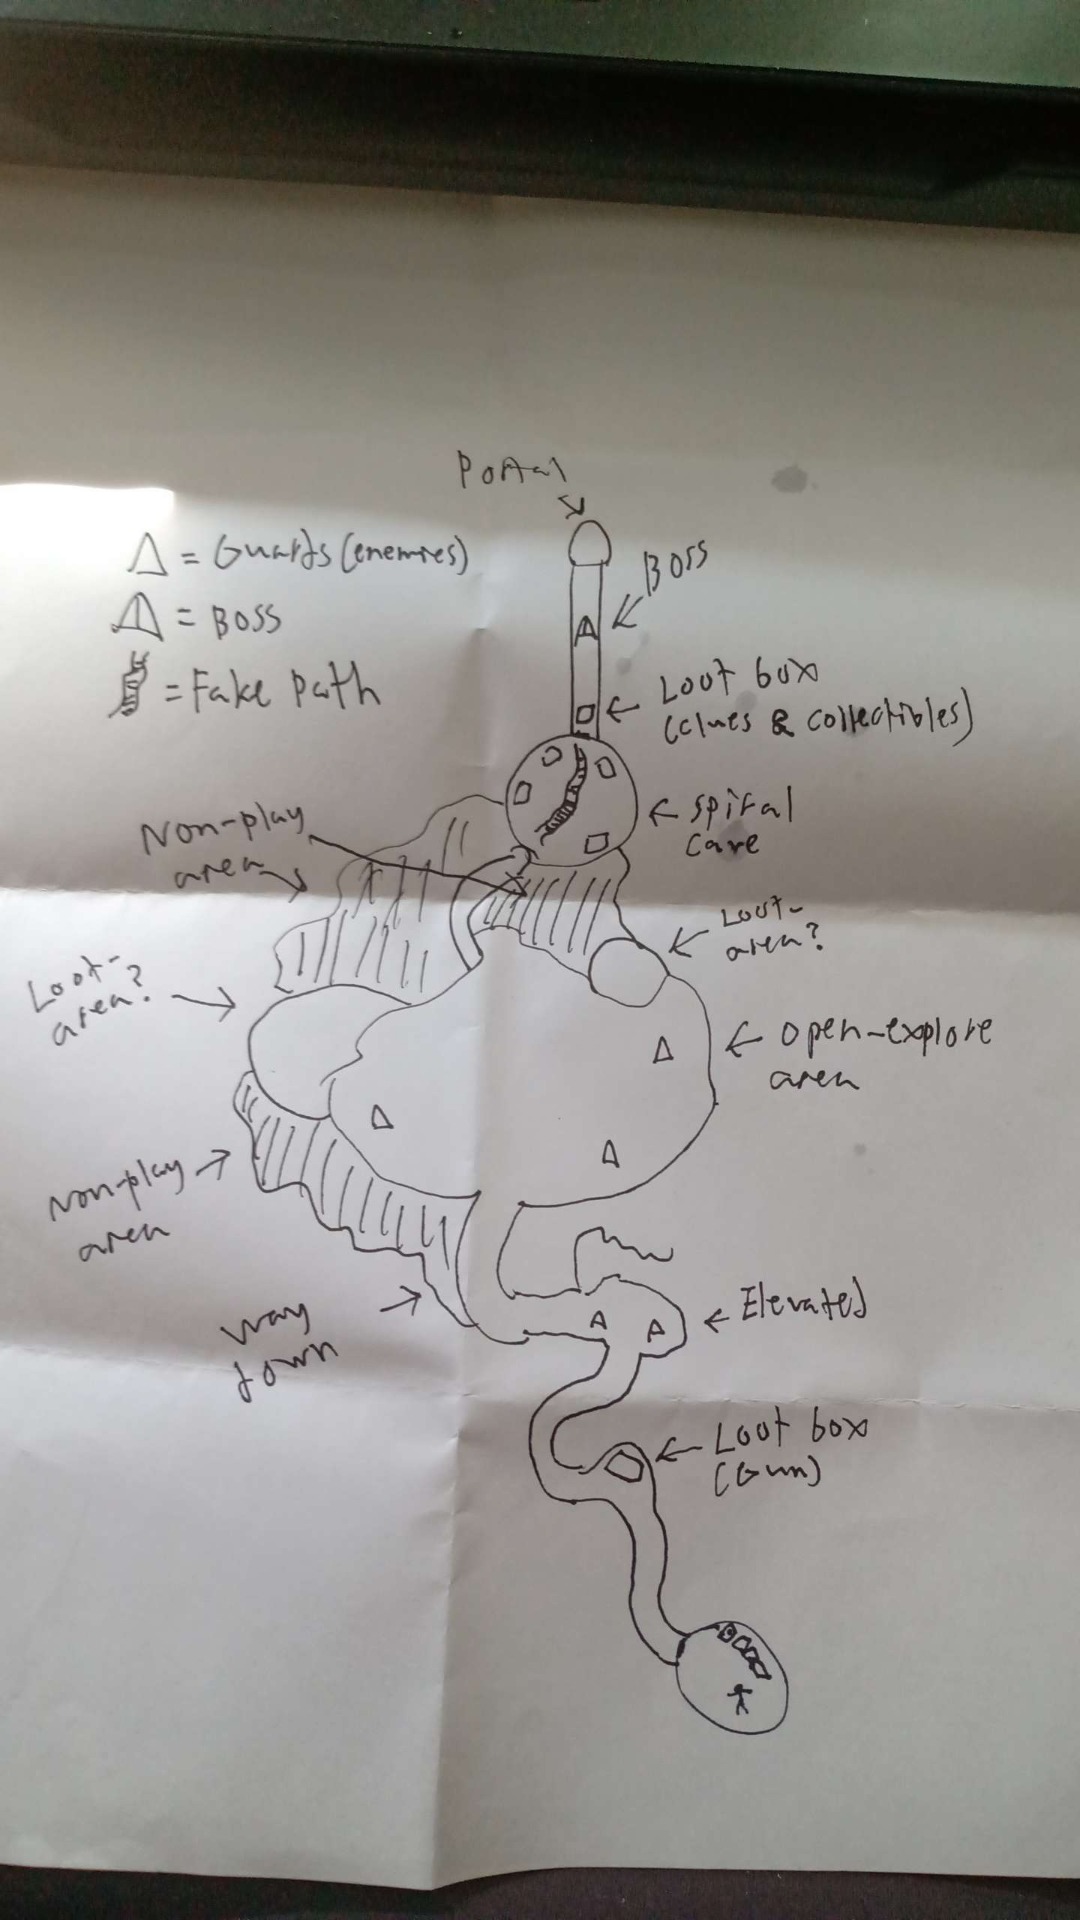 Portal
Δ = Guards (enemies)
Boss
= Boss
= Fake path
Loot box
(clues & collectibles)
Non-play
area
spiral
cave
Loot-
area?
Loot-
area?
open-explore
area
Non-play
area
Elevated
way
down
Loot box
(Gun)